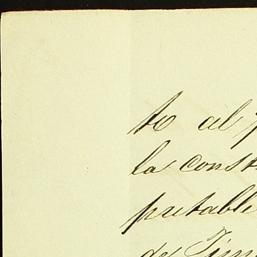 to al p
la const
pretable
de Tim